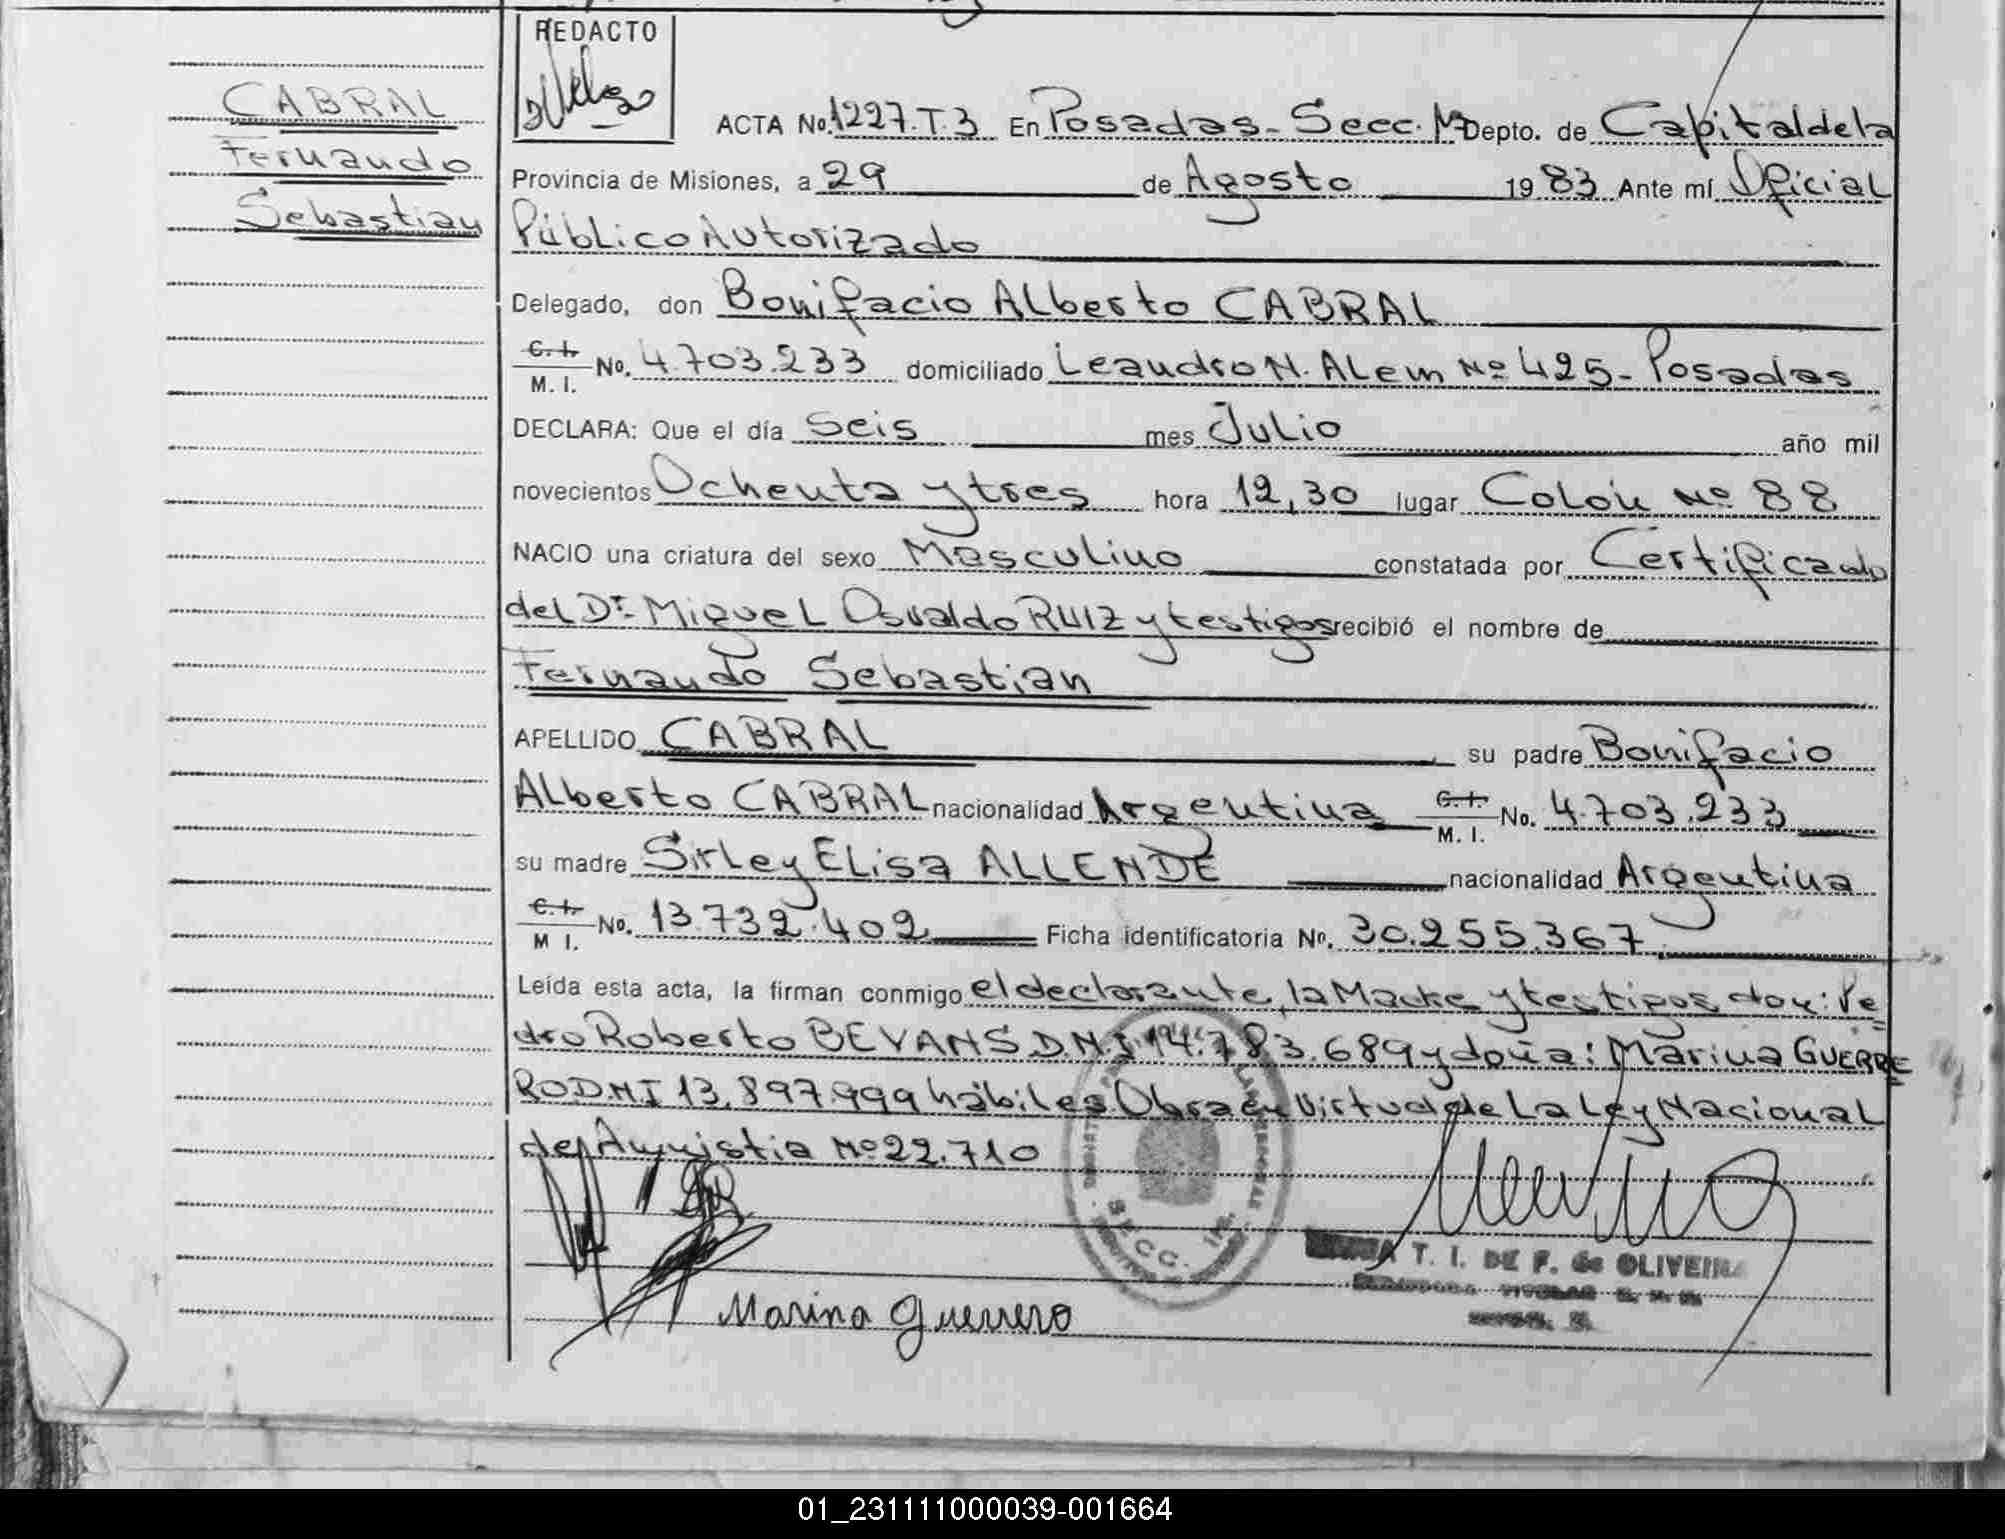 REDACTO
CABRAL
Fernando
Sebastian
ACTA No. 1227.T.3 En Posadas - Secc. Depto. de Capital de la
Provincia de Misiones, a 29 de Agosto 1983 Ante mí Oficial
Público Autorizado
Delegado, don Bonifacio Alberto CABRAL
C. I. / M. I. No. 4.703.233 domiciliado Leandro N. Alem Nº 425 - Posadas
DECLARA: Que el día seis mes Julio año mil
novecientos Ochenta y tres hora 12,30 lugar Colón Nº 88
NACIO una criatura del sexo Masculino constatada por Certificado
del Dr. Miguel Osvaldo RUIZ y testigos recibió el nombre de
Fernando Sebastian
APELLIDO CABRAL su padre Bonifacio
Alberto CABRAL nacionalidad Argentina C. I. / M. I. No. 4.703.233
su madre Sirley Elisa ALLENDE nacionalidad Argentina
C. I. / M I. No. 13.732.402 Ficha identificatoria No. 30.255.367
Leída esta acta, la firman conmigo el declarante, la Madre y testigos don: Pe=
dro Roberto BEVANS DNI 14.783.689 y doña: Marina GUERRE=
RO DNI 13.897.999 hábiles. Obra en Virtud de La Ley Nacional
de Amnistia Nº 22.710
SECC.
T. I. DE F. de OLIVEIRA
Marina Guerrero
01_231111000039-001664